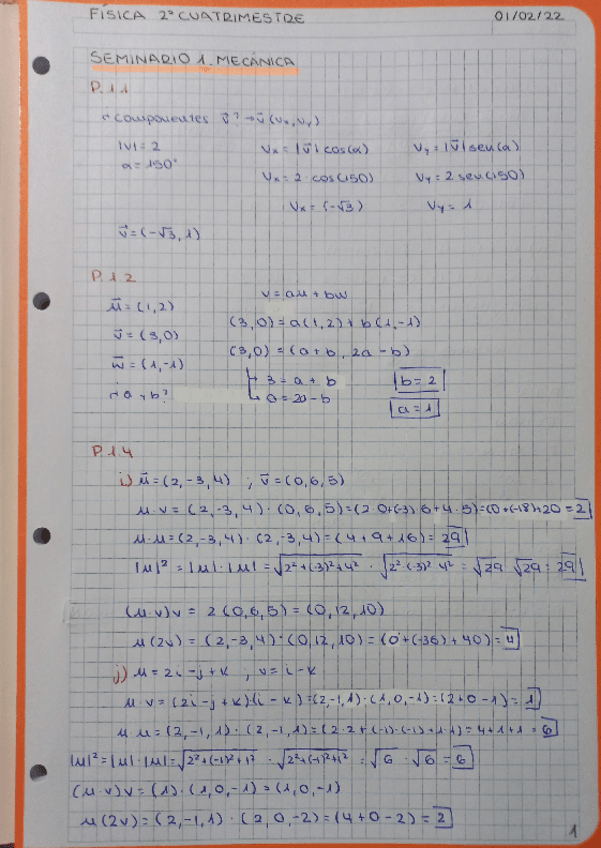 FÍSICA 2º CUATRIMESTRE 01/02/22
SEMINARIO 1. MECÁNICA
P.1.1
¿componentes v⃗? → v⃗(Vx,Vy)
|v|=2 Vx=|v⃗|cos(a) Vy=|v⃗|seu(a)
a=150° Vx=2·cos(150) Vy=2seu(150)
Vx=(-√3) Vy=1
v⃗=(-√3,1)
P.1.2
v=au+bw
u⃗=(1,2)
(3,0)=a(1,2)+b(1,-1)
v⃗=(3,0)
(3,0)=(a+b, 2a-b)
w⃗=(1,-1)
3=a+b b=2
¿a y b? 0=2a-b a=1
P.1.4
i) u⃗=(2,-3,4) ; v⃗=(0,6,5)
u·v=(2,-3,4)·(0,6,5)=(2·0+(-3)·6+4·5)=(0+(-18)+20=2
u·u=(2,-3,4)·(2,-3,4)=(4+9+16)=29
|u|²=|u|·|u|=√2²+(-3)²+4² · √2²·(-3)² 4² = √29 √29 = 29
(u·v)v = 2(0,6,5)=(0,12,10)
u(2v)=(2,-3,4)·(0,12,10)=(0+(-36)+40)=4
j) u=2i-j+k ; v=i-k
u·v=(2i-j+k)(i-k)=(2,-1,1)·(1,0,-1)=(2+0-1)=1
u·u=(2,-1,1)·(2,-1,1)=(2·2+(-1)·(-1)+1·1)=4+1+1=6
|u|²=|u|·|u|=√2²+(-1)²+1² · √2²+(-1)²+1² = √6 · √6 = 6
(u·v)v=(1)·(1,0,-1)=(1,0,-1)
u(2v)=(2,-1,1)·(2,0,-2)=(4+0-2)=2
1